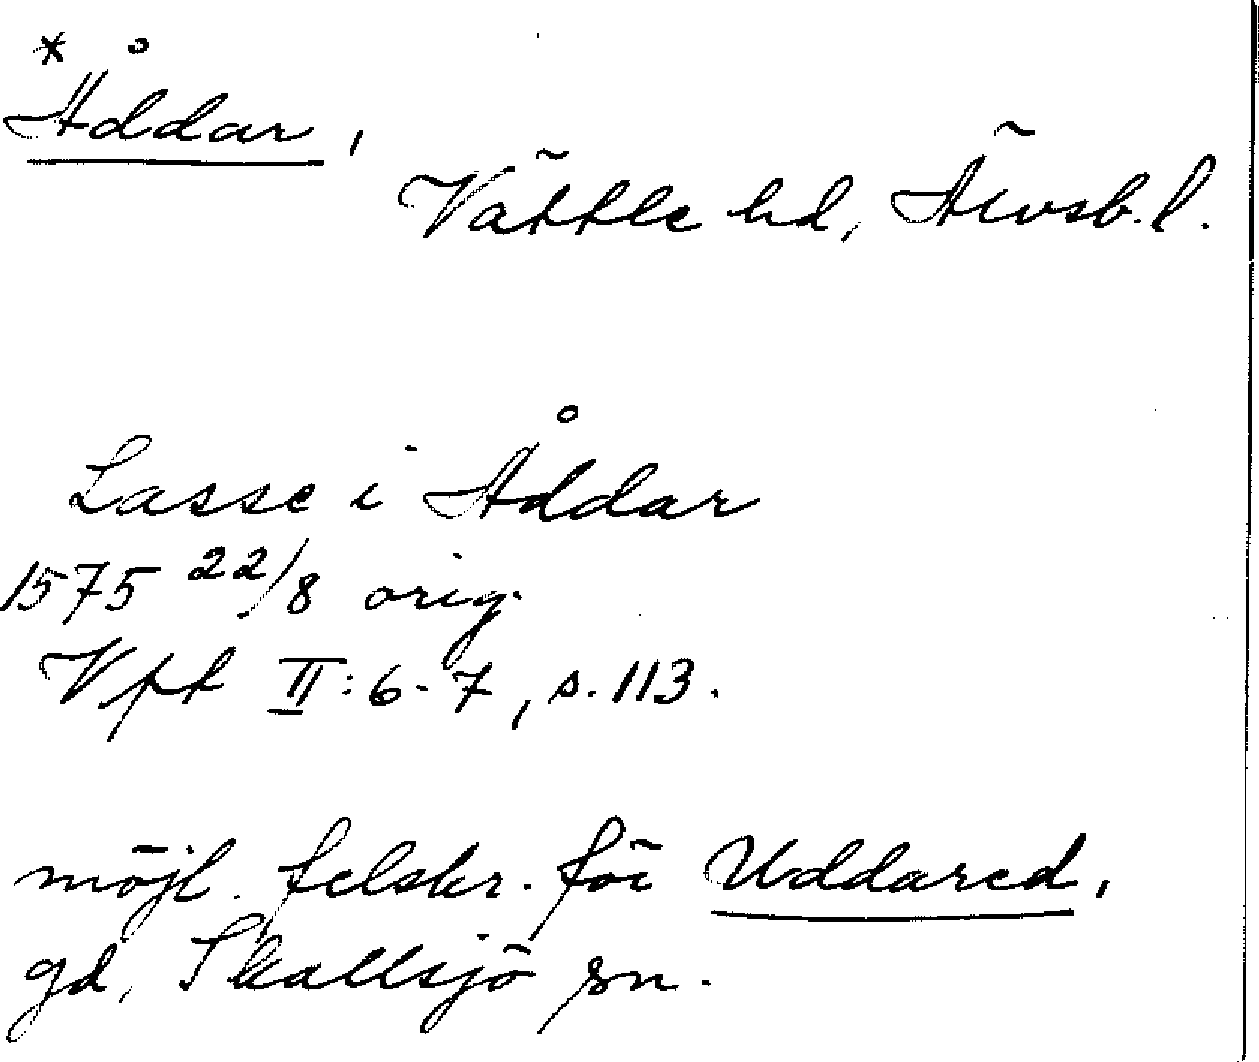 * Åddar,
Vättle hd, Älvsb. l.
Lasse i Åddar
1575 22/8 orig.
Vpt II: 6-7, s. 113.
möjl. felskr. för Uddared,
gd, Skallsjö sn.